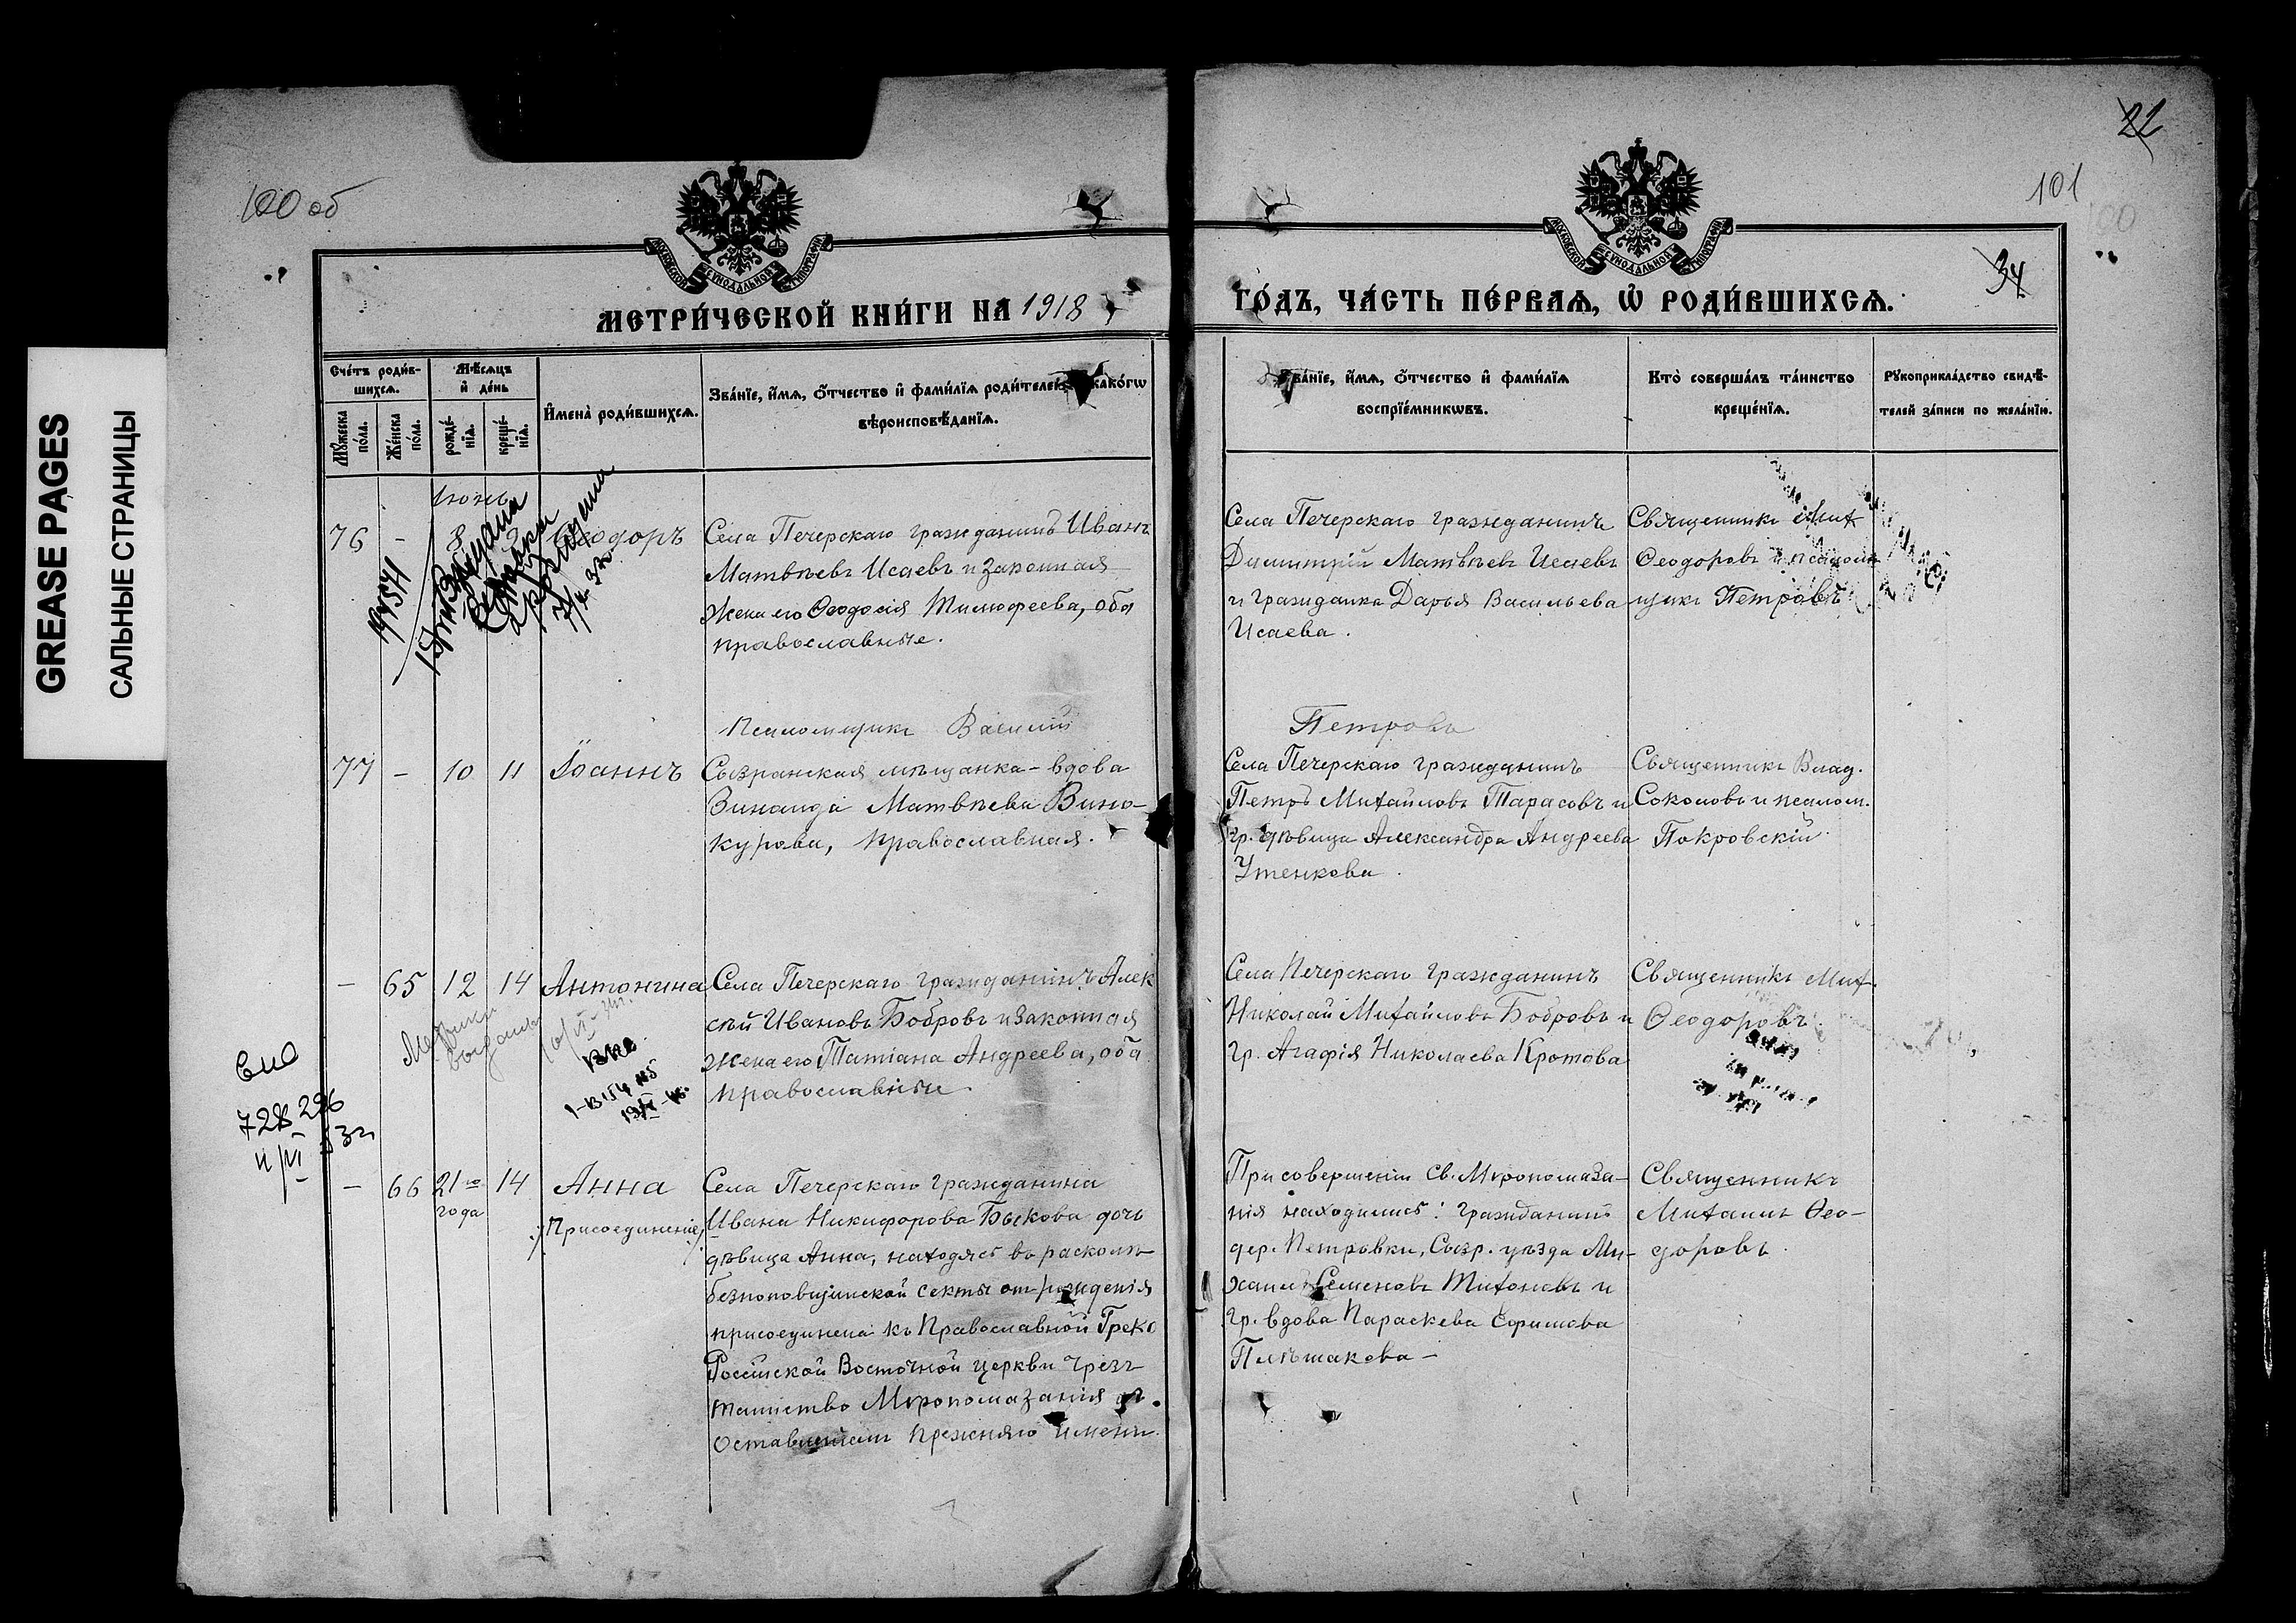 GREASE PAGES
САЛЬНЫЕ СТРАНИЦЫ
100 об
МОСКОВСКОЙ СУНОДАЛЬНОЙ ТИПОГРАФІИ
МЕТРИ́ЧЕСКОЙ КНИ́ГИ НА 1918
Сче́тъ роди́в-
шихсѧ.
Мѣ́сѧцъ
и҆ де́нь
Мꙋ́жеска
по́ла.
Же́нска
по́ла.
рожде́-
нїѧ.
креще́-
нїѧ.
И҆мена̀ роди́вшихсѧ.
Зва́нїе, и҆́мѧ, ѻ҆́тчество и҆ фами́лїѧ роди́телей како́гѡ
вѣроисповѣ́данїѧ.
Іюнь
76 - 8 Ѳеодоръ
Села Печерскаго гражданинъ Иванъ
Матвѣевъ Исаевъ и законная
жена его Ѳеодосія Тимофеева, оба
православные.
19571
Псаломщикъ Василій
77 - 10 11 Іоаннъ
Сызранская мѣщанка - вдова
Зинаида Матвѣева Вино-
курова, православная.
- 65 12 14 Антонина
Села Печерскаго гражданинъ Алек
сѣй Ивановъ Бобровъ и законная
жена его Татіана Андреева, оба
православные
Метрика
выдана
- 66 21го года 14 Анна
/Присоединеніе/
Села Печерскаго гражданина
Ивана Никифорова Быкова дочь
дѣвица Анна, находясь въ расколѣ
безпоповщинской секты от рожденія
присоединена къ Православной Греко
Россійской Восточной церкви чрезъ
таинство Мѵропомазанія съ
оставленіем прежняго имени.
22
101
100
34
МОСКОВСКОЙ СУНОДАЛЬНОЙ ТИПОГРАФІИ
ГО́ДЪ, ЧА́СТЬ ПЕ́РВАѦ, Ѿ РОДИ́ВШИХСѦ.
Зва́нїе, и҆́мѧ, ѻ҆́тчество и҆ фами́лїѧ
воспрїе́мникѡвъ.
Кто̀ соверша́лъ та́инство
креще́нїѧ.
Рꙋкоприкла́дство свидѣ́-
телей за́писи по жела́нїю.
Села Печерскаго гражданинъ
Димитрій Матвѣевъ Исаевъ
и гражданка Дарья Васильева
Исаева.
Священникъ Мих
Ѳеодоровъ и псалом
щикъ Петровъ
Петровъ
Села Печерскаго гражданинъ
Петръ Михайловъ Тарасовъ и
гр. дѣвица Александра Андреева
Утенкова
Священникъ Влад.
Соколовъ и псалом.
Покровскій
Села Печерскаго гражданинъ
Николай Михайловъ Бобровъ и
гр. Агафія Николаева Кротова
Священникъ Мих.
Ѳеодоровъ
При совершеніи Св. Мѵропомаза-
нія находились: гражданинъ
дер. Петровки, Сызр. уѣзда Ми-
хаилъ Семеновъ Тихоновъ и
гр. вдова Параскева Ефимова
Плѣшакова -
Священникъ
Михаилъ Ѳео-
доровъ.